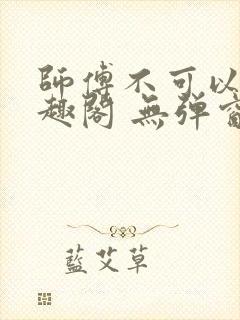 師傅不可以
趣閣 無彈
藍艾草